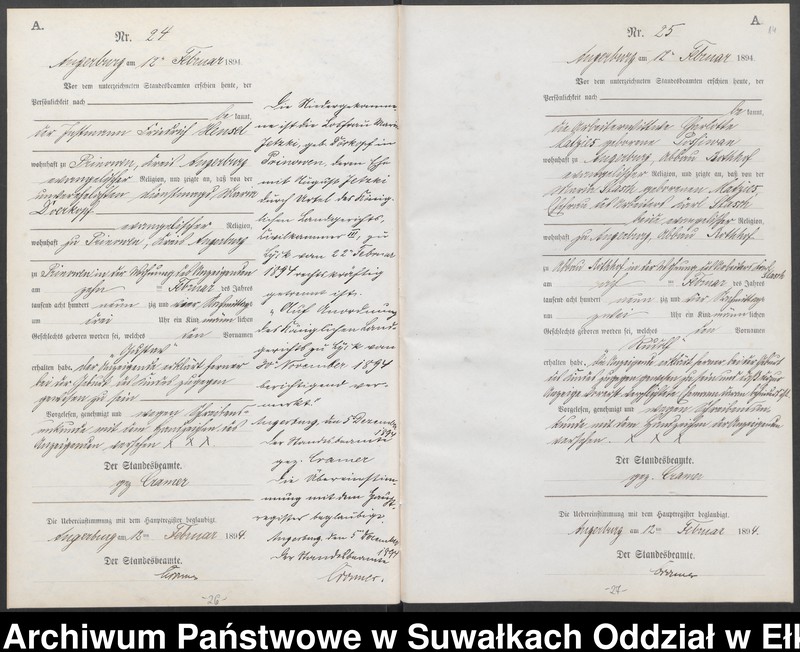 A.
Nr. 24
Angerburg am 12ten Februar 1894.
Vor dem unterzeichneten Standesbeamten erschien heute, der
Persönlichkeit nach
be kannt,
der Instmann Friedrich Hensel
wohnhaft zu Prinowen, Kreis Angerburg
evangelischer Religion, und zeigte an, daß von der
unverehelichten Dienstmagd, Maria
Doerkopf
evangelischer Religion,
wohnhaft zu Prinowen, Kreis Angerburg
zu Prinowen in der Wohnung des Anzeigenden
am zehn ten Februar des Jahres
tausend acht hundert neun zig und vier Nachmittags
um drei Uhr ein Kind männ lichen
Geschlechts geboren worden sei, welches den Vornamen
Gustav
erhalten habe. Der Anzeigende erklärt ferner
bei der Geburt des Kindes zugegen
gewesen zu sein
Vorgelesen, genehmigt und wegen Schreibens-
unkunde mit dem Handzeichen des
Anzeigenden versehen X X X
Der Standesbeamte.
gez. Cramer
Die Uebereinstimmung mit dem Hauptregister beglaubigt.
Angerburg am 12ten Februar 1894.
Der Standesbeamte.
Cramer
-26-
Die Niedergekomme-
ne ist die Losfrau Maria
Jetzki, geb. Dörkopf in
Prinowen, deren Ehe
mit August Jetzki
durch Urtel des König-
lichen Landgerichts,
Civilkammer III, zu
Lyck vom 22ten Februar
1894 rechtskräftig
getrennt ist.
Auf Anordnung
des Königlichen Land-
gerichts zu Lyck vom
30ten November 1894
berichtigend ver-
merkt.
Angerburg, den 5 Dezember
1894
Der Standesbeamte
gez. Cramer
Die Übereinstim-
mung mit dem Haupt-
register beglaubigt.
Angerburg, den 5 Dezember
1894
Der Standesbeamte
Cramer.
A
Nr. 25
Angerburg am 12ten Februar 1894.
Vor dem unterzeichneten Standesbeamten erschien heute, der
Persönlichkeit nach
be kannt,
die Arbeiterwittwe Charlotte
geborene
wohnhaft zu Angerburg, Abbau Rothhof
evangelischer Religion, und zeigte an, daß von der
Maria geborenen
Ehefrau des Arbeiters Carl
beide evangelischer Religion,
wohnhaft zu Angerburg, Abbau Rothhof
zu Abbau Rothhof in der Wohnung des Arbeiters Carl
am ten Februar des Jahres
tausend acht hundert neun zig und vier Vormittags
um zwei Uhr ein Kind männ lichen
Geschlechts geboren worden sei, welches den Vornamen
erhalten habe. Die Anzeigende erklärt ferner bei der Geburt
des Kindes zugegen gewesen zu sein und daß
Anzeige
Vorgelesen, genehmigt und wegen Schreibensun-
kunde mit dem Handzeichen der Anzeigenden
versehen. X X X
Der Standesbeamte.
gez. Cramer
Die Uebereinstimmung mit dem Hauptregister beglaubigt.
Angerburg am 12ten Februar 1894.
Der Standesbeamte.
Cramer
-27-
Archiwum Państwowe w Suwałkach Oddział w Ełk